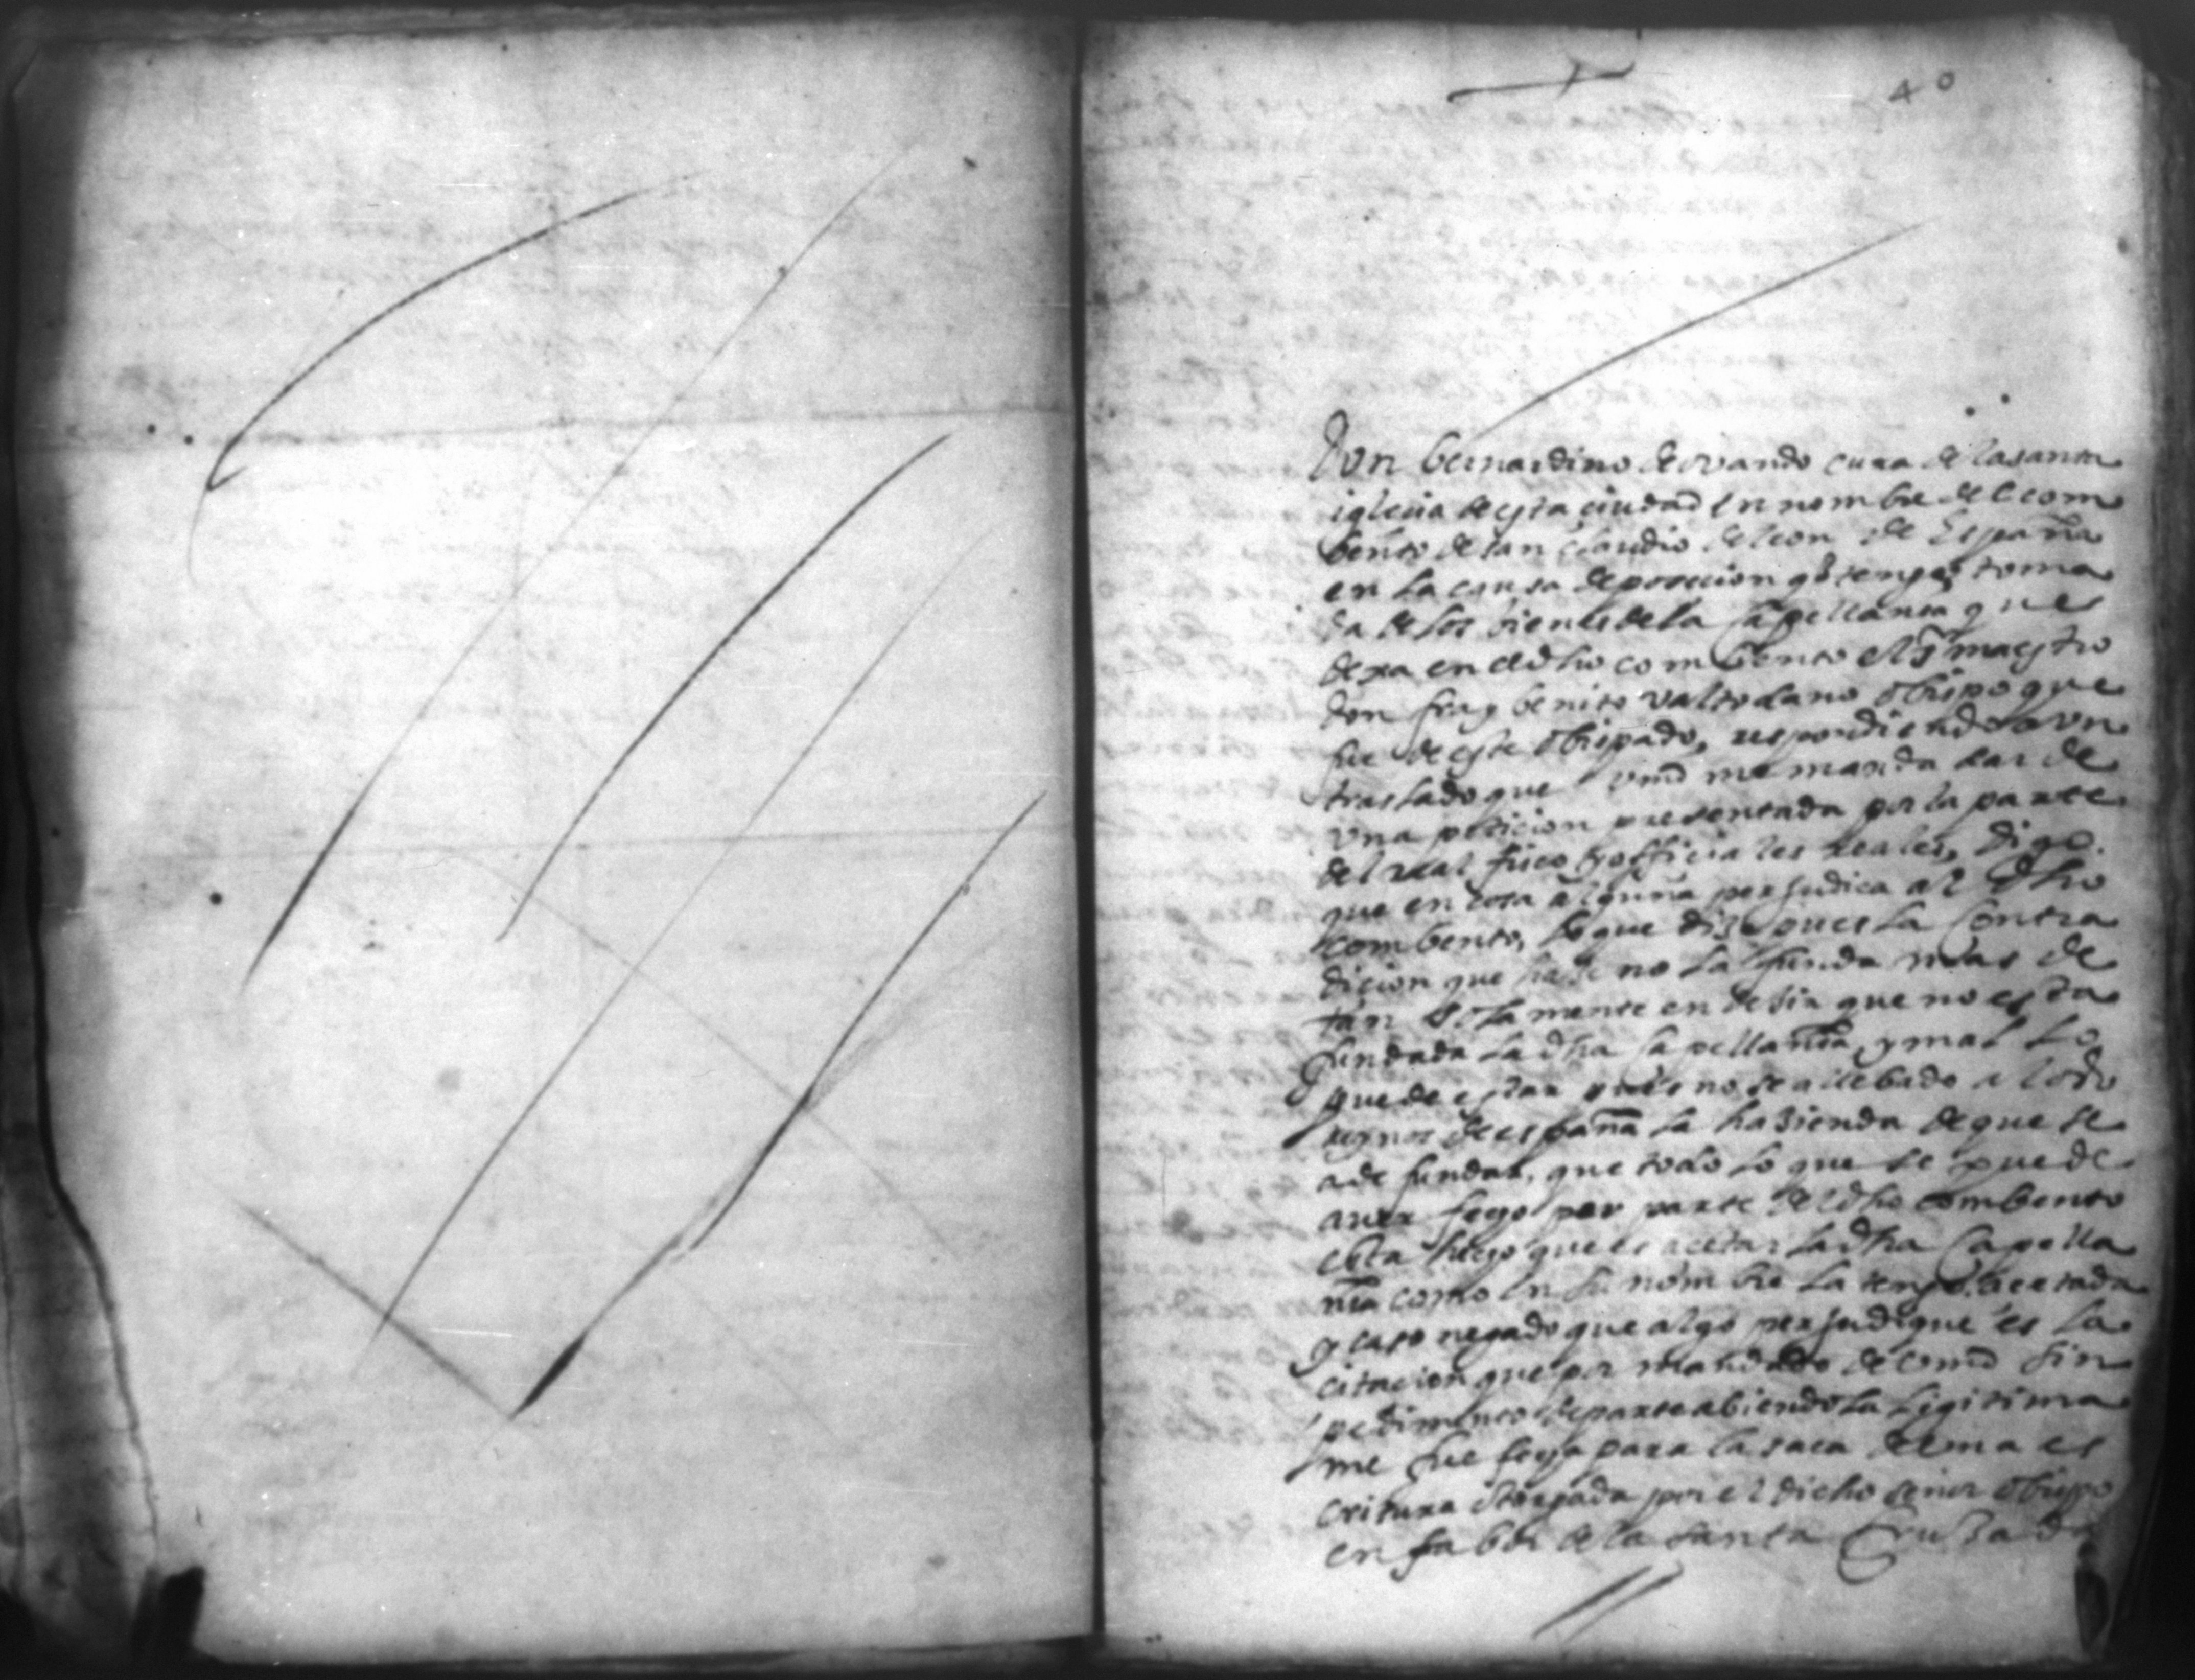 40
Don bernardino de ovando cura de la santa
iglesia de esta ciudad en nombre del com
bento de san claudio de leon de España
en la causa de posecion q̃ tengo toma
da de los bienes de la capellania que
dexa en el dho combento el sr maestro
don fray benito valtodano obispo que
fue de este obispado, respondiendo a un
traslado que vmd me manda dar de
una peticion presentada por la parte
del real fisco y officiales reales, digo
que en cosa alguna perjudica al dho
combento, lo que dize pues la contra
dicion que hase no la funda mas de
tan solamente en desir que no esta
fundada la dha capellania, y mal lo
puede estar pues no se a llebado a los
reynos de españa la hazienda de que se
a de fundar, que todo lo que se puede
aver fecho por parte del dho combento
esta fecho que es acetar la dha capella
nia como en su nombre la tengo acetada
y caso negado que algo perjudique es la
citacion que por mandado de vmd sin
pedimento de parte abiendola ligitima
me fue fecha para la saca de una es
critura otorgada por el dicho señor obispo
en fabor de la santa Cruzada